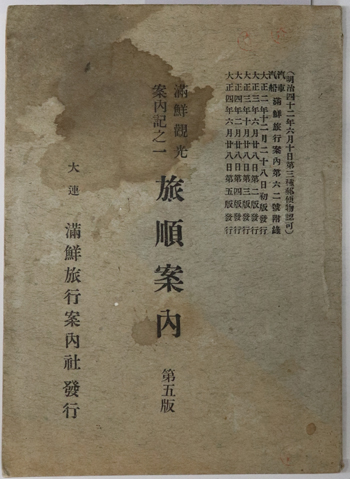 (明治四十二年六月十日第三種郵便物認可)
汽車汽船滿鮮旅行案内第六二號附錄
大正二年十二月二十八日初版發行
大正三年六月廿八日第二版發行
大正三年十月廿八日第三版發行
大正四年六月廿八日第四版發行
大正四年六月廿八日第五版發行
滿鮮觀光
案内記之一
旅順案内
第五版
大連
滿鮮旅行案内社發行